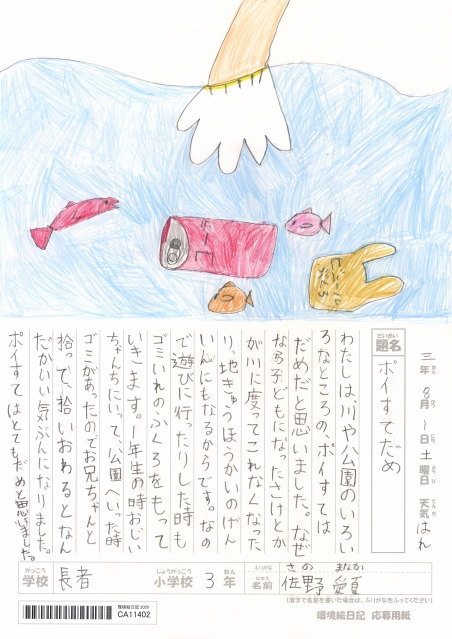 ビール
ビニール
ぶくろ
三年 8月 1日 土曜日 天気 はれ
だいめい
題名
ポイすてだめ
わたしは、川や公園のいろい
ろなところの、ポイすては
だめだと思いました。なぜ
なら子どもになったさけとか
が川に戻ってこれなくなった
り、地きゅうほうかいのげん
いんにもなるからです。なの
で遊びに行ったりした時も
ゴミいれのふくろをもって
いきます。1年生の時おじい
ちゃんちにいって、公園へいった時
ゴミがあったのでお兄ちゃんと
拾って、拾いおわるとなん
だかいい気ぶんになりました。
ポイすてはとてもだめと思いました。
がっこう
学校
長者
しょうがっこう
小学校
3
ねん
年
ふりがな
さの まなか
なまえ
名前
佐野 愛夏
(漢字で名前を書いた場合は、ふりがなをふってください)
環境絵日記 2020
CA11402
環境絵日記 応募用紙